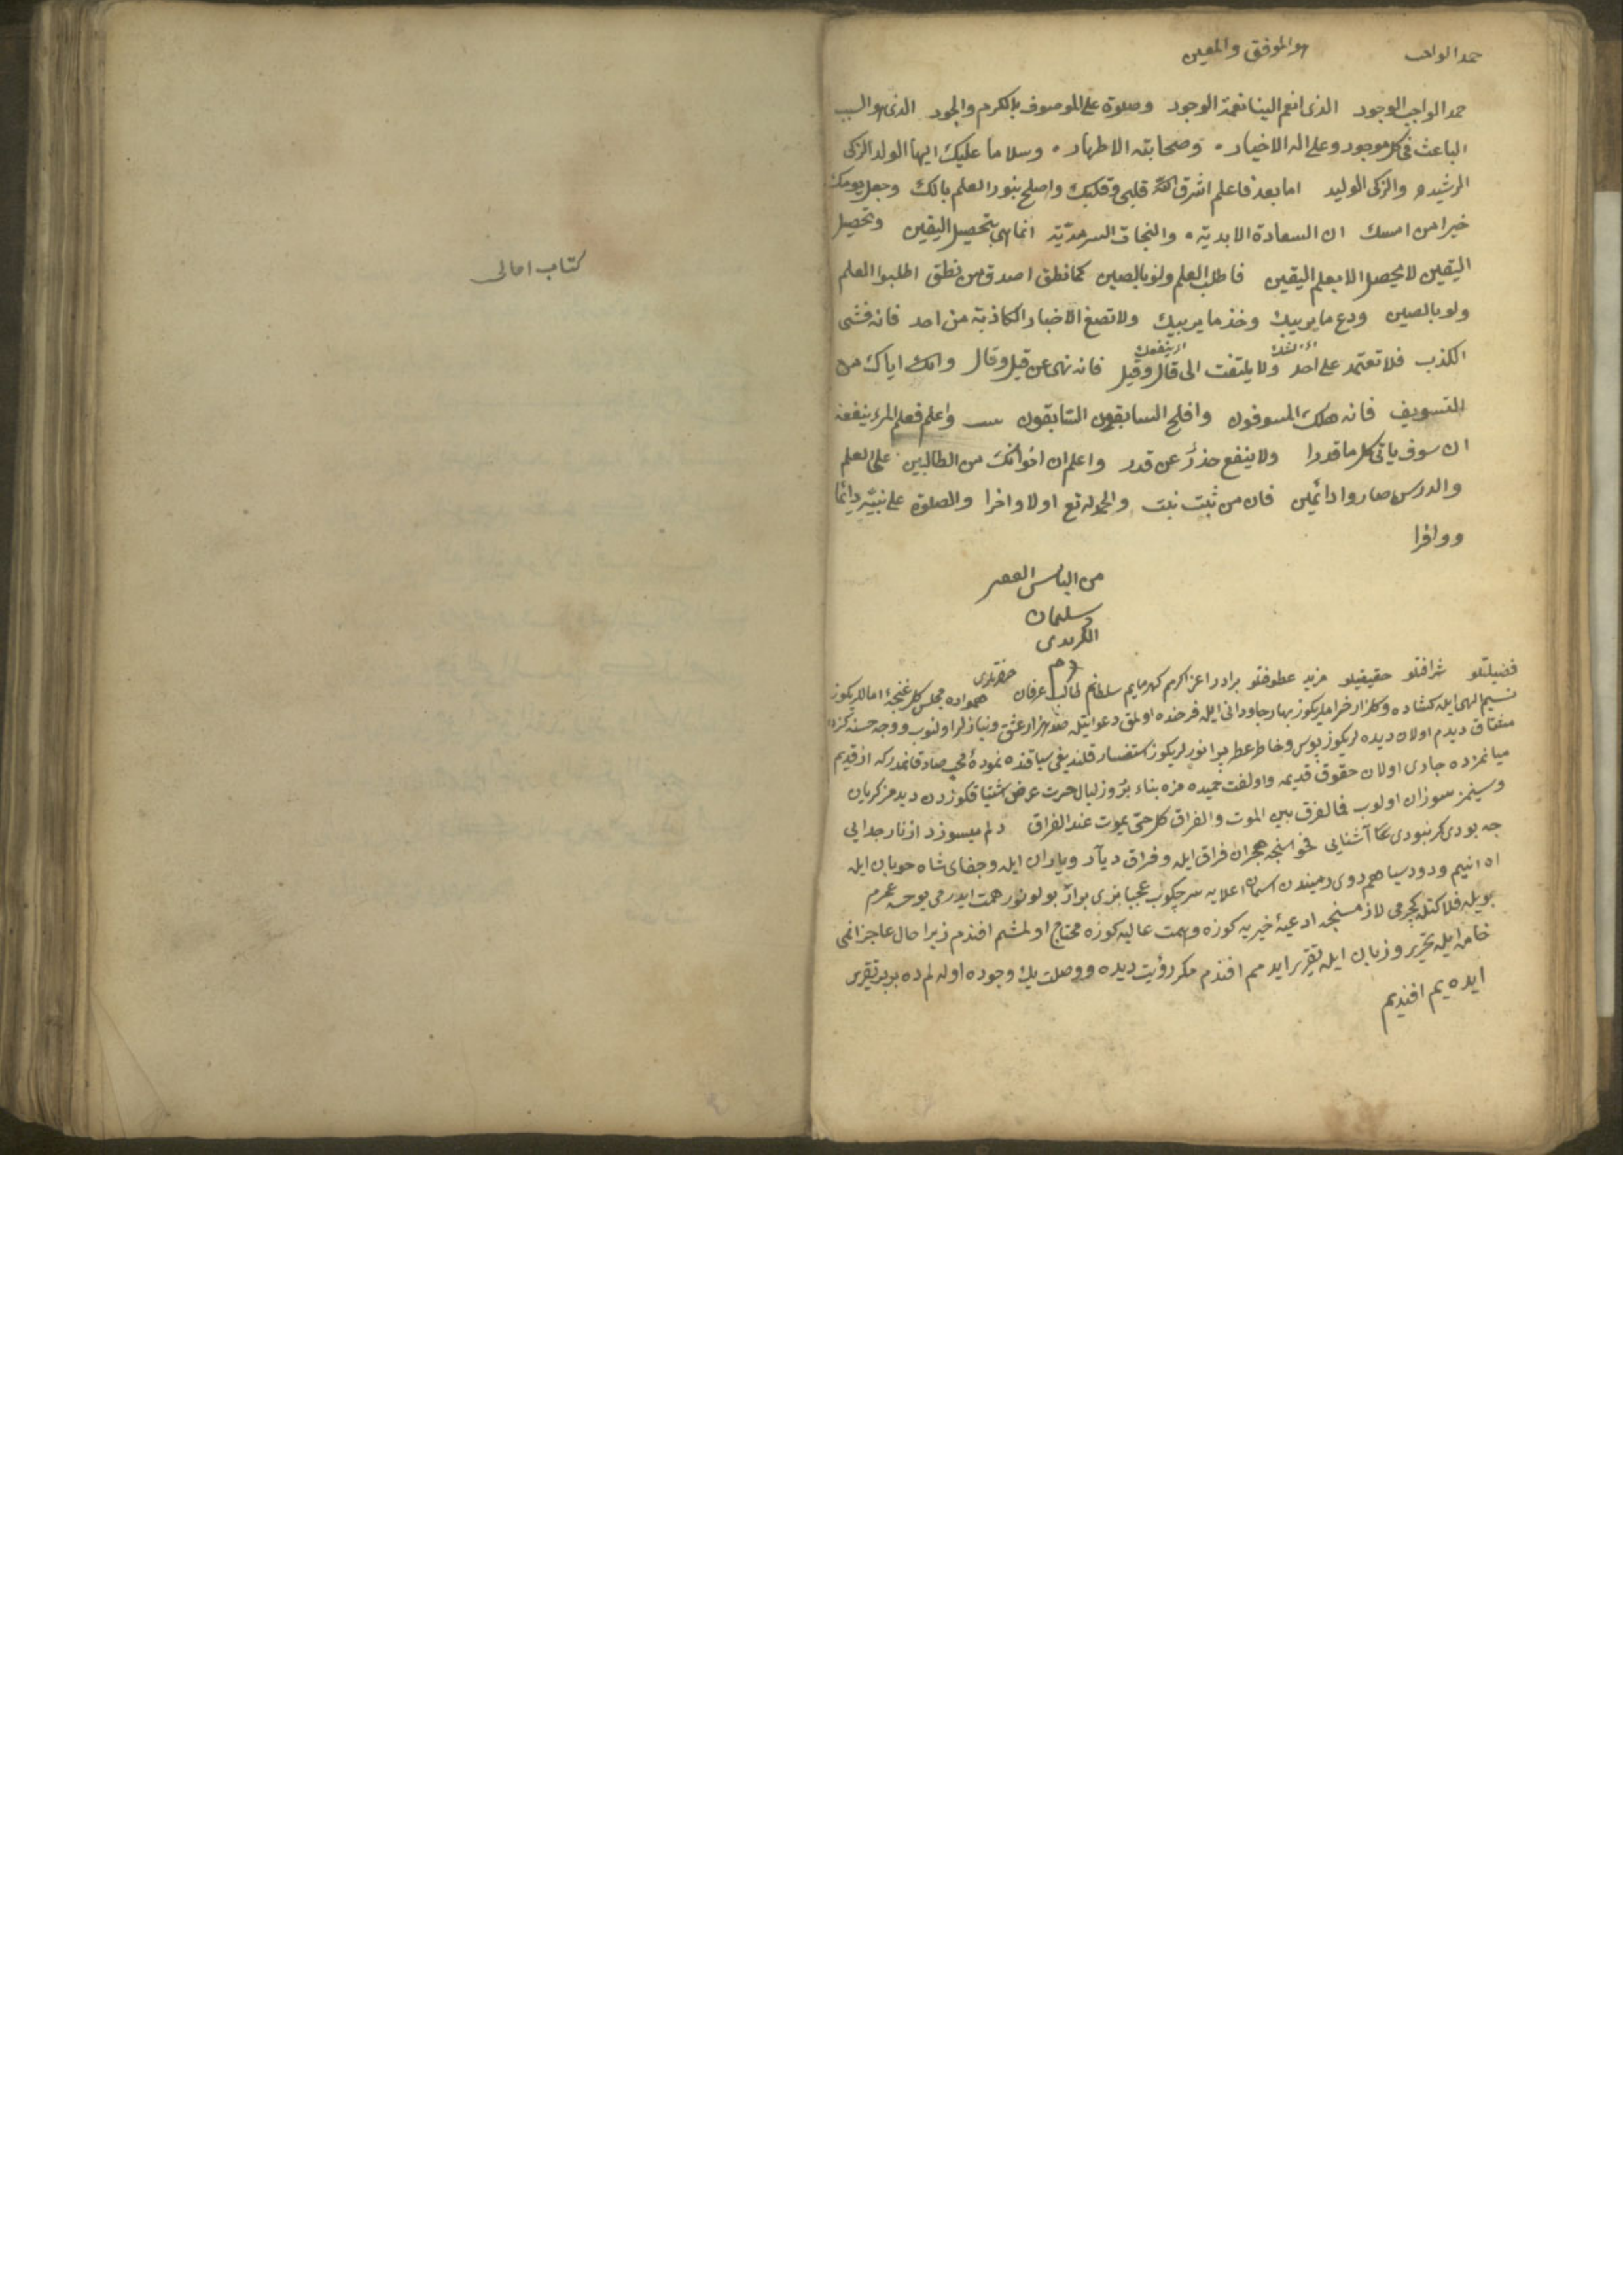 حمدا لواجب
هو الموفق والمعين
حمدا لواجب الوجود الذى انعم الينا نعمة الوجود وصلوة على الموصوف بالكرم والجود الذى هو السبب
الباعث فى كل موجود وعلى اله الاخيار وصحابته الاطهار وسلاما عليك ايها الولد الزكى
الرشيد والزكى الوليد اما بعد فاعلم اشرق الله قلبى وقلبك واصلح بنور العلم بالك وجعل يومك
خيرا من امسك ان السعادة الابدية والنجات السرمدية انما هى بتحصيل اليقين وتحصيل
اليقين لا يحصل الا بعلم اليقين فاطلب العلم ولو بالصين كما نطق اصدق من نطق اطلبوا العلم
ولو بالصين ودع ما يريبك وخذ ما يريبك ولا تصغ الاخبار الكاذبة من احد فانه فشى
الكذب فلا تعتمد على احد ولا يلتفت الى قال وقيل فانه نهى عن قيل وقال وانك اياك من
التسويف فانه هلك المسوفون وافلح السابقون السابقون واعلم فعلم المرء ينفعه
ان سوف ياتى كل ما قدرا ولا ينفع حذر عن قدر واعلم ان اخوانك من الطالبين على العلم
والدرس صاروا دائمين فان من ثبت نبت والحمد لله تع اولا واخرا والصلوة على نبيه دائما
ووافرا
من البائس الفقير
سليمان
الكريدى
فضيلتلو شرافتلو حقيقتلو مزيد عطوفتلو برادر اعز اكرم سلطانم عرفان حضرتلرى همواره مجلس كل غنچۀ امالكريكوز
نسيم الهى ايله كشاده وكلزار بهار جاودانى ايله فرخنده اولمق دعواتيله صد هزار عشق ونيازلر اولنوب ووجه حسنه كزه
مشتاق ديدم اولان ديده لريكوز بوس وخاطر عطر لريكوز استفسار قلنديغى سياقنده نمودۀ محب صادقانه در كه از قديم
ميانمزده جارى اولان حقوق قديمه واولفت حميده مزه بناء ليال حسرت عرض اشتياقكوزدن ديده مز كريان
وسينمز سوزان اولوب فما الفرق بين الموت والفراق كل حى يموت عند الفراق دلم ميسوزد از نار جدايى
چه بودى كر نبودى آشنايى فحواسنجه هجران فراق ايله وفراق ديار وياران ايله وجفاى شاه خوبان ايله
اه انيم ودود سياهم روى زميندن اسمان اعلايه سر چكوب عجبا بزى
بويله ادعيۀ خيريه كوزه وهمت عاليه كوزه محتاج اولمشم افندم زيرا حال عاجزانمى
خامه ايله تحرير وزبان ايله تقرير ايدمم افندم مكر رؤيت ديده ووصلت يك وجوده اوله لم ده بر بر تقرير
ايده يم افنديم
كتاب امالى